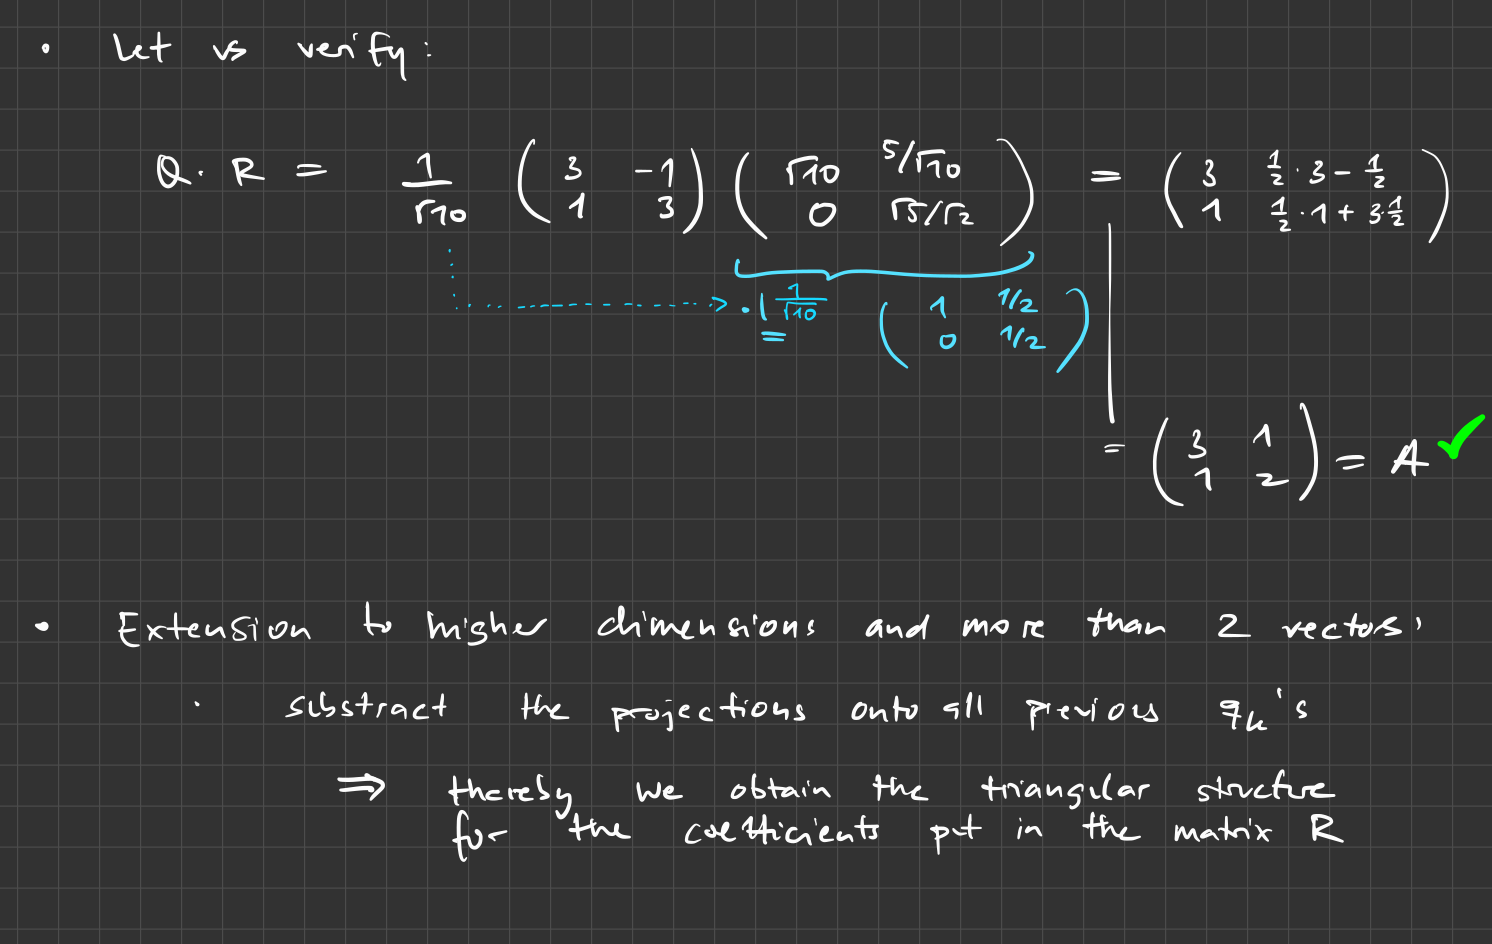 • Let us verify:
Q · R = 1/√10 ( 3 -1 ; 1 3 ) ( √10 5/√10 ; 0 √5/√2 ) = ( 3 1/2 · 3 - 1/2 ; 1 1/2 · 1 + 3 · 1/2 )
· 1/√10 ( 1 1/2 ; 0 1/2 )
= ( 3 1 ; 1 2 ) = A ✓
• Extension to higher dimensions and more than 2 vectors:
· substract the projections onto all previous qk's
⇒ thereby we obtain the triangular structure
for the coefficients put in the matrix R